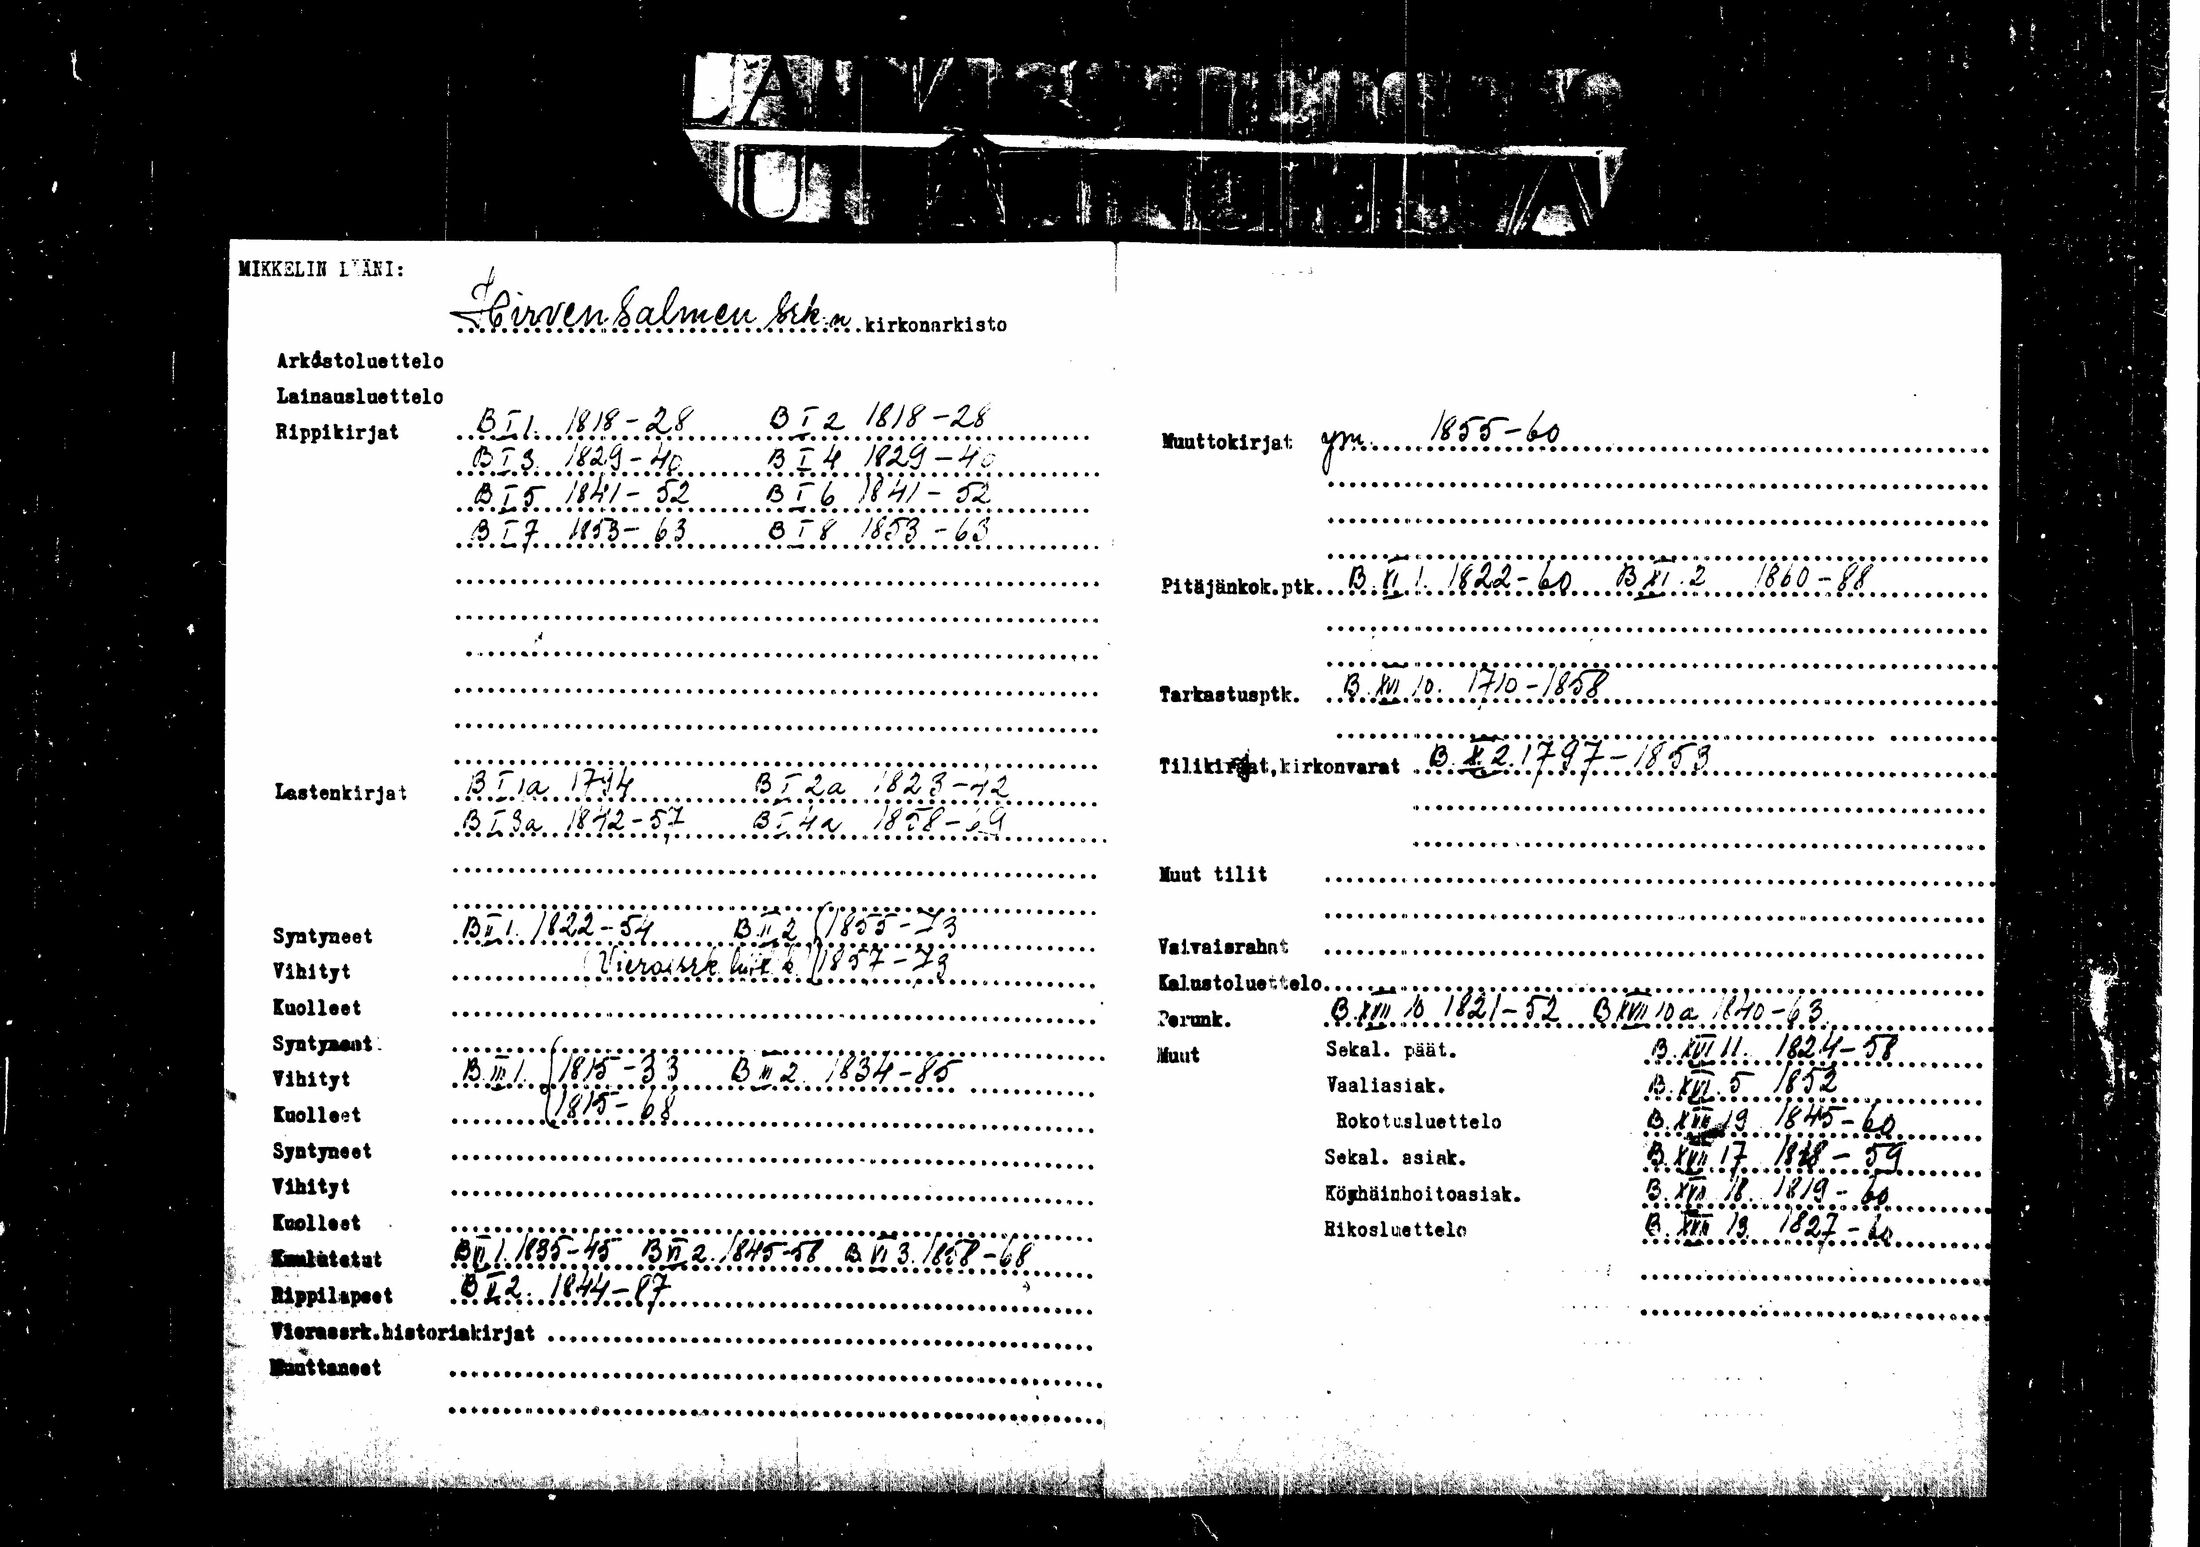 MIKKELIN LÄÄNI:
Hirvensalmen srk:n kirkonarkisto
Arkistoluettelo
Lainausluettelo
Rippikirjat B I 1. 1818-28 B I 2 1818-28
B I 3. 1829-40 B I 4 1829-40
B I 5 1841-52 B I 6 1841-52
B I 7 1853-63 B I 8 1853-63
Lastenkirjat B I 1a 1794 B I 2a 1823-42
B I 3a 1842-57 B I 4a 1858-69
Syntyneet B II 1. 1822-54 B II 2 1855-73
Vihityt (Vierassrk 1857-73
Kuolleet
Syntyneet
Vihityt B III 1. 1815-33 B III 2. 1834-85
Kuolleet 1815-68
Syntyneet
Vihityt
Kuolleet
Kuulutetut B VI 1. 1835-45 B VI 2. 1845-58 B VI 3. 1858-68
Rippilapset B V 2. 1844-87
Vierassrk.historiakirjat
Muuttaneet
Muuttokirjat ym. 1855-60
Pitäjänkok.ptk. B. XI 1. 1822-60 B XI. 2 1860-88
Tarkastusptk. B. XVI 10. 1710-1858
Tilikirjat,kirkonvarat B. X. 2. 1797-1853
Muut tilit
Vaivaisrahat
Kalustoluettelo
Perunk. B. XVII 10 1821-52 B XVII 10a 1840-63
Muut Sekal. päät. B. XVI 11. 1824-58
Vaaliasiak. B. XVI. 5 1852
Rokotusluettelo B. XVII 19 1845-60
Sekal. asiak. B. XVII 17 1818-59
Köyhäinhoitoasiak. B. XVII 18. 1819-60
Rikosluettelo B. XVII 13. 1827-60